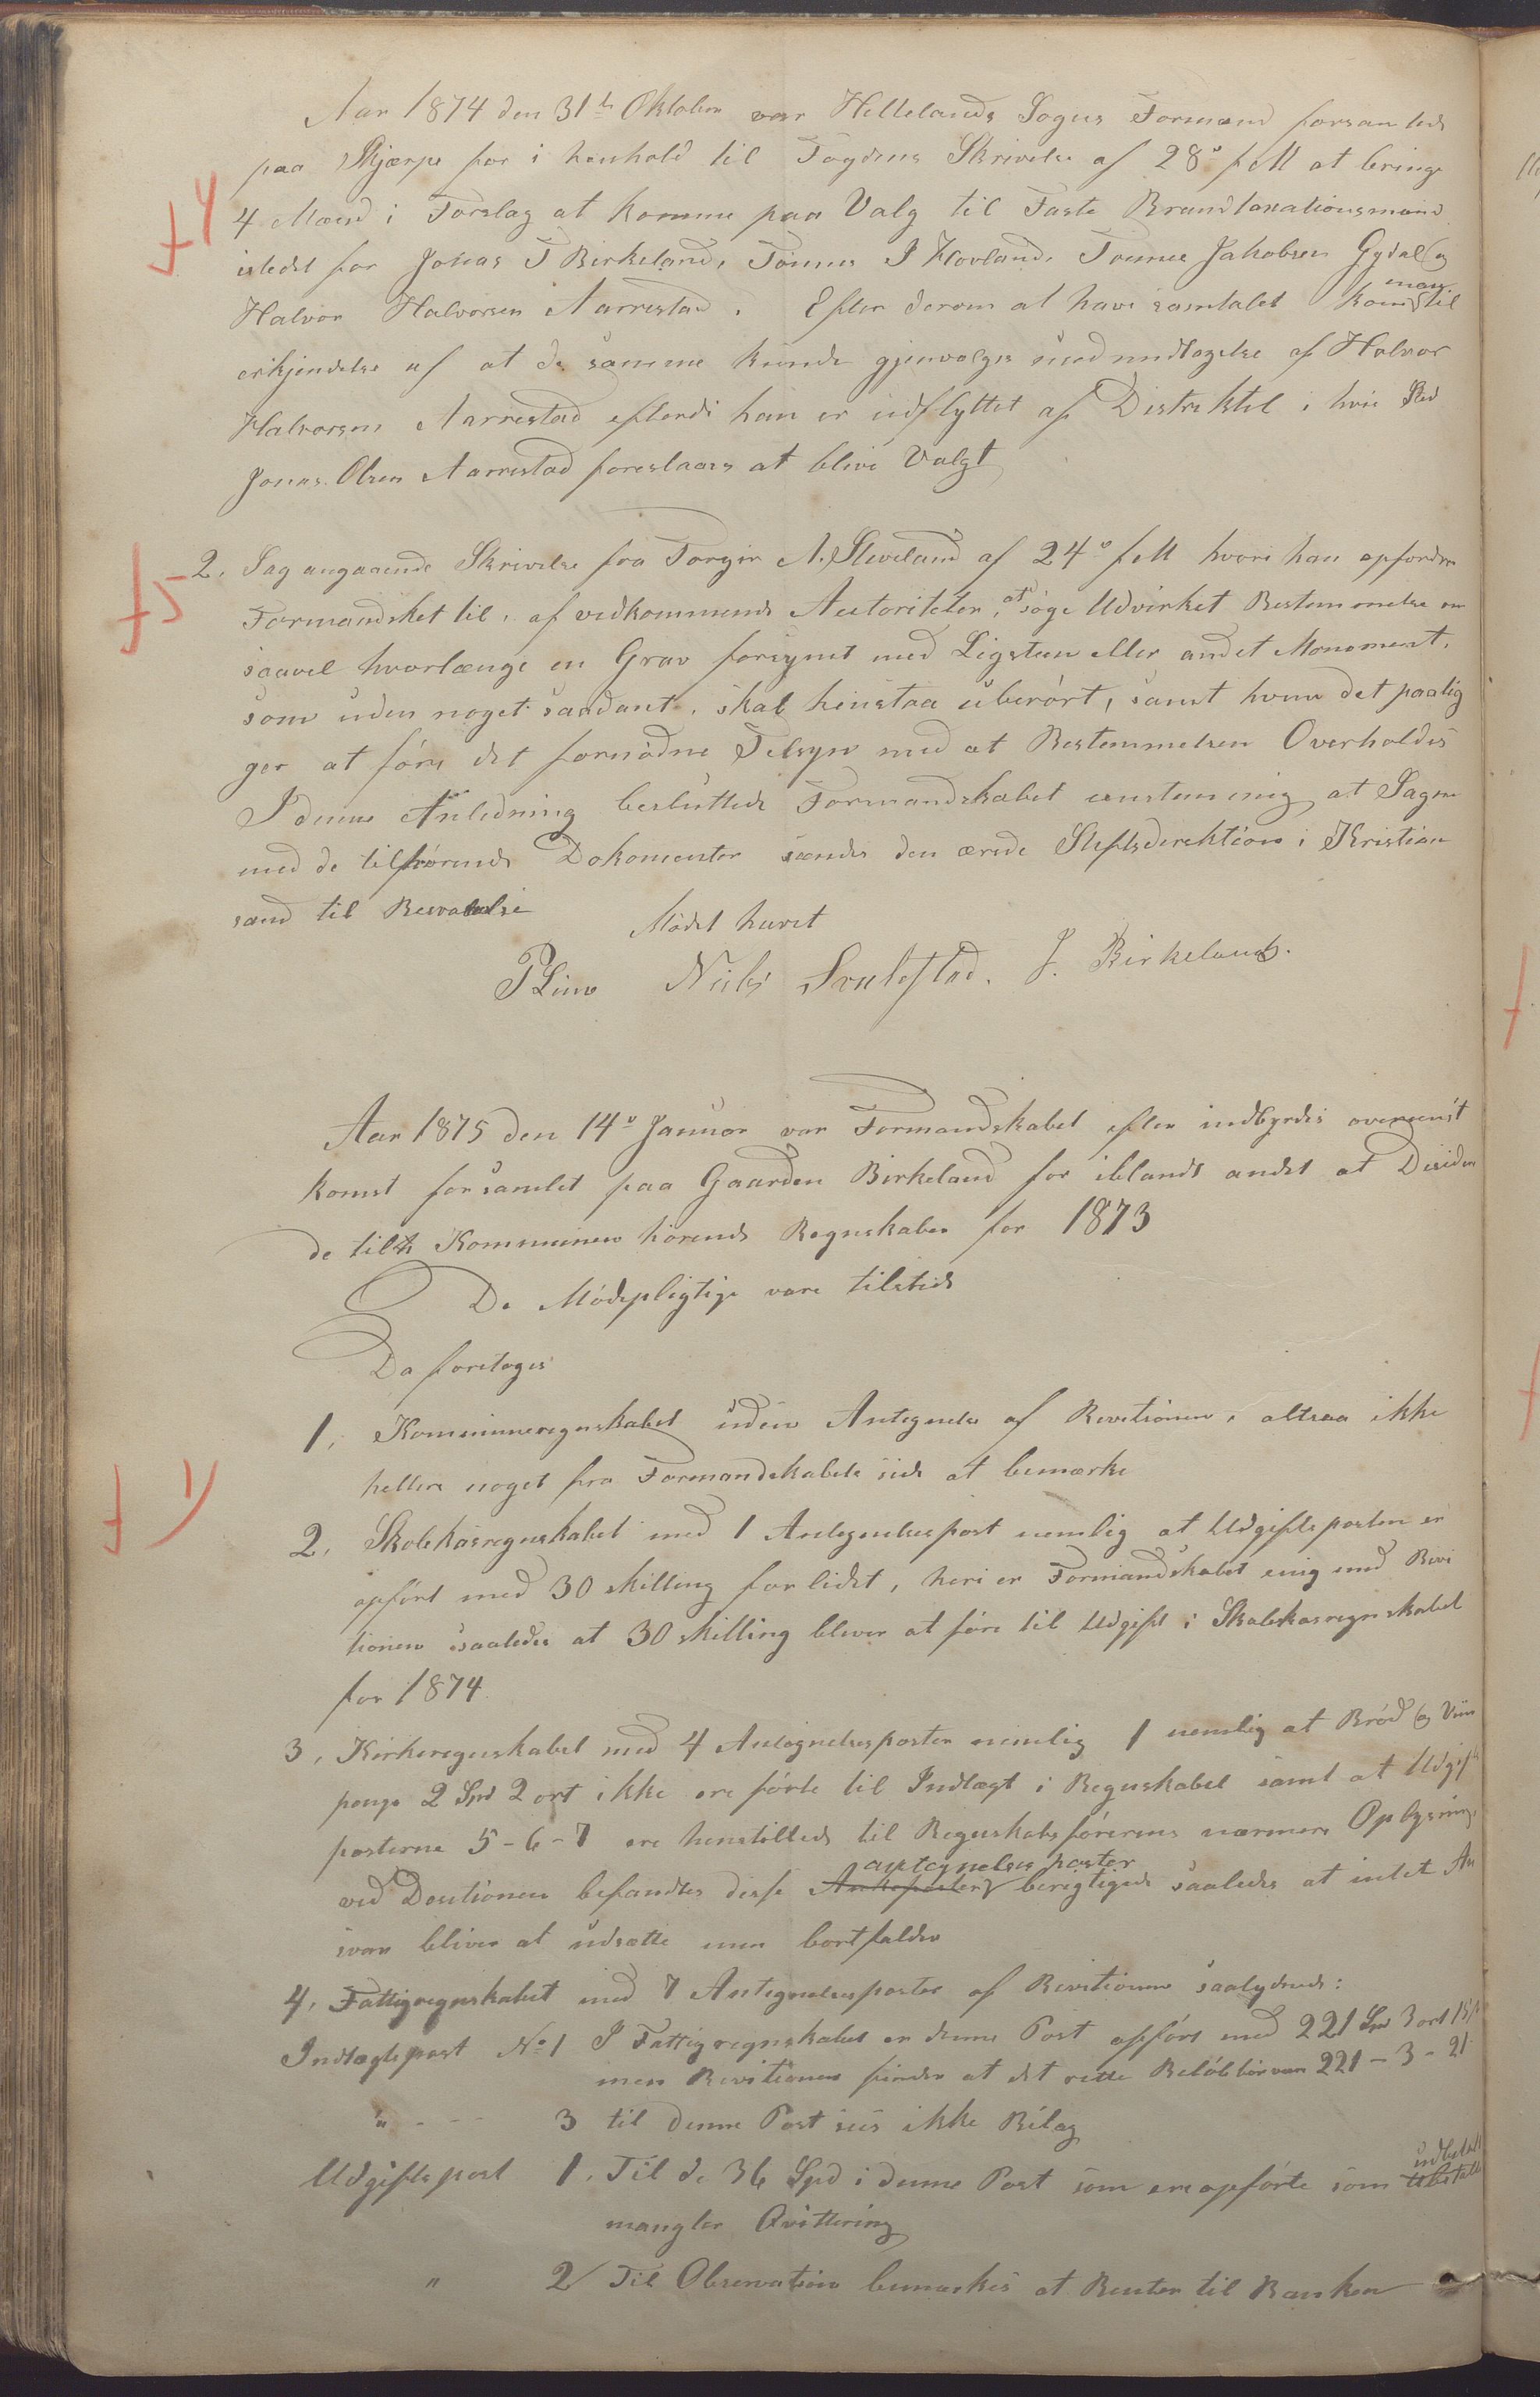 Aar 1874 den 31te Oktober var Hellelands Sogns Formænd forsamlede
paa Skjerpe for i henhold til Fogdens Skrivelse af 28de f M at bringe
4 Mænd i Forslag at komme paa Valg til Faste Brandtaxationsmænd
istedet for Jonas T Birkeland, Tønnes I Hovland, Tønnes Jakobsen Gydal og
Halvor Halvorsen Aarrestad. Efter derom at have samtalet kom man til
erkjendelse af at de samme kunde gjenvælges med undtagelse af Halvor
Halvorsen Aarrestad efterdi han er udflyttet af Distriktet i hvis Sted
Jonas Olsen Aarrestad foreslaaes at blive Valgt
2, Sag angaaende Skrivelse fra Torger A. Sleveland af 24de f M hvori han opfordrer
Formandsket til, af vedkommende Autoriteter, at søge Udvirket Bestemmelse om
saavel hvorlænge en Grav forsynet med Ligsteen eller andet Monoment,
som uden noget saadant, skal henstaa uberørt, samt hvem det paalig
ger at føre det fornødne Tilsyn med at Bestemmelsen Overholdes
I denne Anledning besluttede Formandskabet enstemmig at Sagen
med de tilhørende Dokomenter sendes den ærede Stiftsdirektion i Kristian
sand til Besvarelse
Mødet hævet
P Lim Niels Svalestad. J. Birkeland.
Aar 1875 den 14de Januar var Formandskabet efter indbyrdes overenst
komst forsamlet paa Gaarden Birkeland for iblandt andet at Desidere
de til Kommunen hørende Regnskaber for 1873
De Mødepligtige vare tilstede
Da foretoges
1, Kommuneregnskabet uden Antegnelse af Revitionen, altsaa ikke
heller noget fra Formandskabets side at bemærke
2, Skolekasregnskabet med 1 Antegnelsespost nemlig at Udgiftsposten er
opført med 30 skilling for lidet, heri er Formandskabet enig med Revi
tionen saaledes at 30 skilling bliver at føre til Udgift i Skolekasregnskabet
for 1874
3, Kirkeregnskabet med 4 Antegnelsesposter nemlig 1 nemlig at Brød og Viin
penge 2 Spd 2 ort ikke ere førte til Indtægt i Regnskabet samt at Udgift
posterne 5-6-7 ere henstillede til Regnskabsførerens nærmere Oplysning,
ved Desitionen befandtes disse antegnelses poster berigtigede saaledes at intet An
svar bliver at udsætte men bortfalder
4, Fattigregnskabet med 7 Antegnelsesposter af Revitionen saalydende:
Indtægtspost No 1 I Fattigregnskabet er denne Post opført med 221 Spd 3 ort 15
men Revitionen finder at det rette Beløb bør være 221-3-21
" - - - 3 til denne Post sees ikke Bilag
Udgiftspost 1, Til de 36 Spd i denne Post som ere opførte som udbetalt
mangler Qvittering
" 2 Til Observation bemærkes at Renter til Banken